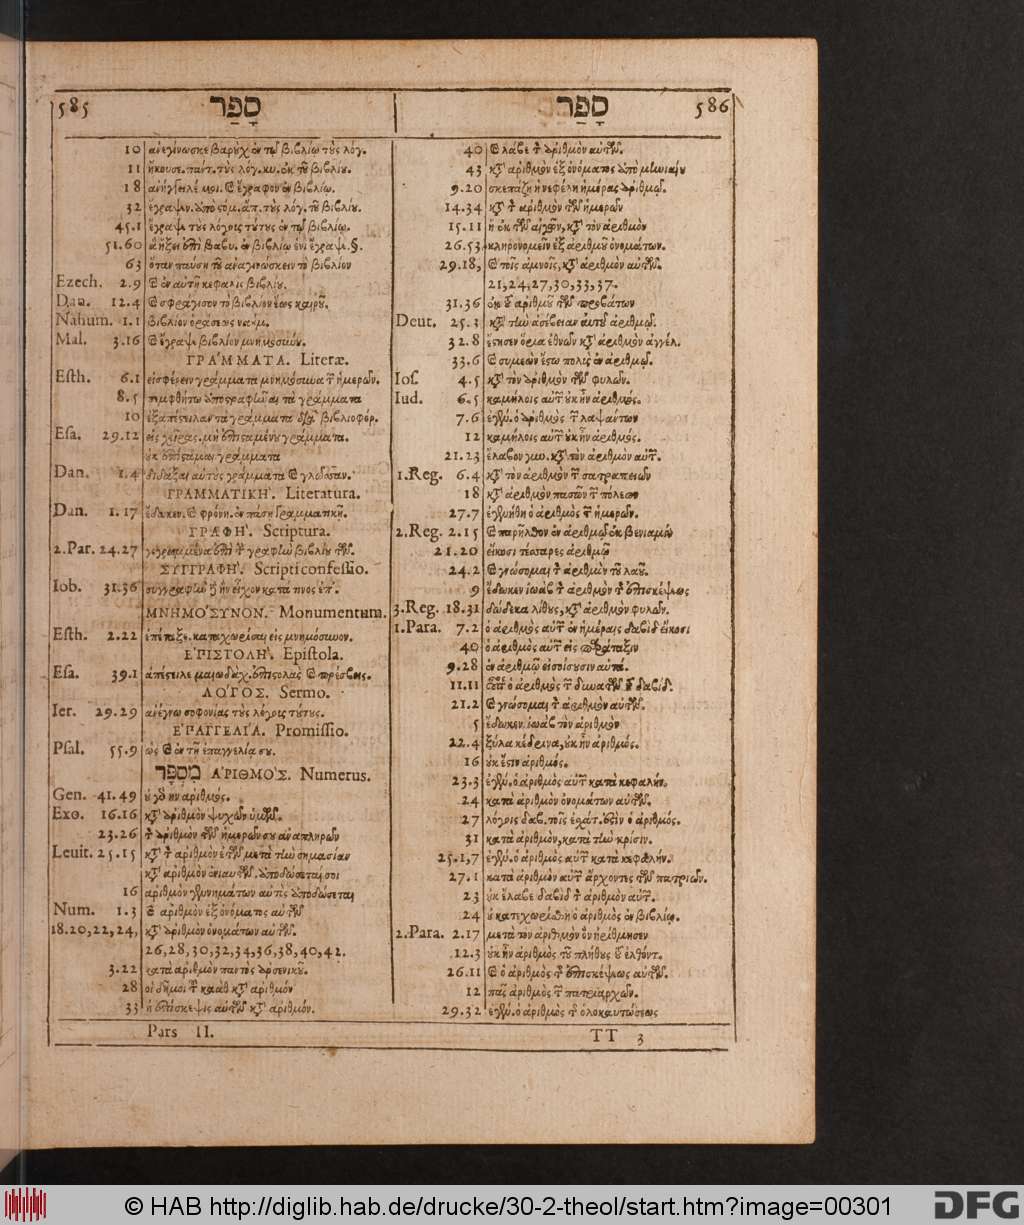 585 סָפַר
10 ἀνεγίνωσκε βαρὺχ ἐν τῷ βιβλίῳ τοὺς λόγ.
11 ἤκουσε. παντ. τοὺς λόγ. κυ. ἐκ τοῦ βιβλίου.
18 ἀνήγγειλέ μοι. καὶ ἔγραφον ἐν βιβλίῳ.
32 ἔγραψεν. ἀπὸ στόμ. ἅπ. τοὺς λόγ. τοῦ βιβλίου.
45.1 ἔγραψε τοὺς λόγους τούτους ἐν τῷ βιβλίῳ.
51.60 ἃ ἥξει ἐπὶ βαβυ. ἐν βιβλίῳ ἑνὶ ἔγραψε.§.
63 ὅταν παύσῃ τοῦ ἀναγινώσκειν τὸ βιβλίον
Ezech. 2.9 καὶ ἐν αὐτῇ κεφαλὶς βιβλίου.
Dan. 12.4 καὶ σφράγισον τὸ βιβλίον ἕως καιροῦ.
Nahum. 1.1 βιβλίον ὁράσεως ναούμ.
Mal. 3.16 καὶ ἔγραψε βιβλίον μνημοσύνου.
ΓΡΑ΄ΜΜΑΤΑ. Literæ.
Eſth. 6.1 εἰσφέρειν γράμματα μνημόσυνα τῶν ἡμερῶν.
8.5 πεμφθήτω ἀποστραφῆναι τὰ γράμματα
10 ἐξαπέστειλαν τὰ γράμματα διὰ βιβλιοφόρ.
Eſa. 29.12 εἰς χεῖρας. μὴ ἐπισταμένου γράμματα.
οὐκ ἐπίσταμαι γράμματα
Dan. 1.4 διδάξαι αὐτοὺς γράμματα καὶ γλῶσσαν.
ΓΡΑΜΜΑΤΙΚΗ΄. Literatura.
Dan. 1.17 ἔδωκεν. καὶ φρόνη. ἐν πάσῃ γραμματικῇ.
ΓΡΑΦΗ΄. Scriptura.
2.Par. 24.27 γεγραμμένα ἐπὶ τὴν γραφὴν βιβλίου τῶν.
ΣΥΓΓΡΑΦΗ΄. Scripti confeſſio.
Iob. 31.36 συγγραφὴν ἣν εἶχον κατά τινος ἐπ΄.
ΜΝΗΜΟ΄ΣΥΝΟΝ. Monumentum.
Eſth. 2.22 ἐπέταξε. καταχωρίσαι εἰς μνημόσυνον.
Ε΄ΠΙΣΤΟΛΗ΄. Epiſtola.
Eſa. 39.1 ἀπέστειλε μαρωδὰχ. ἐπιστολὰς καὶ πρέσβεις.
ΛΟ΄ΓΟΣ. Sermo.
Ier. 29.29 ἀνέγνω σοφονίας τοὺς λόγους τούτους.
Ε΄ΠΑΓΓΕΛΙ΄Α. Promiſſio.
Pſal. 55.9 ὡς καὶ ἐν τῇ ἐπαγγελίᾳ σου.
מִסְפָּר Α΄ΡΙΘΜΟ΄Σ. Numerus.
Gen. 41.49 οὐ γὰρ ἦν ἀριθμός.
Exo. 16.16 κατὰ ἀριθμὸν ψυχῶν ὑμῶν.
23.26 τὸν ἀριθμὸν τῶν ἡμερῶν σου ἀναπληρῶν
Leuit. 25.15 κατὰ τὸν ἀριθμὸν ἐτῶν μετὰ τὴν σημασίαν
κατὰ ἀριθμὸν ἐνιαυτῶν. ἀποδώσεταί σοι
16 ἀριθμὸν γεννημάτων αὐτὸς ἀποδώσεται
Num. 1.3 καὶ ἀριθμὸν ἐξ ὀνόματος αὐτῶν
18.20,22,24, κατὰ ἀριθμὸν ὀνομάτων αὐτῶν.
26,28,30,32,34,36,38,40,42.
3.22 κατὰ ἀριθμὸν παντὸς ἀρσενικοῦ.
28 κατὰ ἀριθμὸν
33 ἡ ἐπίσκεψις αὐτῶν κατὰ ἀριθμόν.
Pars II.
סָפַר 586
40 καὶ λάβε τὸν ἀριθμὸν αὐτῶν.
43 κατὰ ἀριθμὸν ἐξ ὀνόματος ἀπὸ μηνιαίου
9.20 σκεπάζῃ ἡ νεφέλη ἡμέρας ἀριθμῷ.
14.34 κατὰ τὸν ἀριθμὸν τῶν ἡμερῶν
15.11 ἢ ἐκ τῶν αἰγῶν, κατὰ τὸν ἀριθμὸν
26.53 κληρονομεῖν ἐξ ἀριθμοῦ ὀνομάτων.
29.18, καὶ τοῖς ἀμνοῖς, κατὰ ἀριθμὸν αὐτῶν.
21,24,27,30,33,37.
31.36 ἐκ τοῦ ἀριθμοῦ τῶν προβάτων
Deut. 25.3 κατὰ τὴν ἀσέβειαν αὐτοῦ ἀριθμῷ.
32.8 ἔστησεν ὅρια ἐθνῶν κατὰ ἀριθμὸν ἀγγέλ.
33.6 καὶ συμεὼν ἔστω πολὺς ἐν ἀριθμῷ.
Ioſ. 4.5 κατὰ τὸν ἀριθμὸν τῶν φυλῶν.
Iud. 6.5 καμήλοις αὐτῶν οὐκ ἦν ἀριθμός.
7.6 ἐγένετο. ὁ ἀριθμὸς τῶν λαψάντων
12 καμήλοις αὐτῶν οὐκ ἦν ἀριθμός.
21.23 ἔλαβον γυν. κατὰ τὸν ἀριθμὸν αὐτῶν.
1.Reg. 6.4 κατὰ τὸν ἀριθμὸν τῶν σατραπειῶν
18 κατὰ ἀριθμὸν πασῶν τῶν πόλεων
27.7 ἐγενήθη ὁ ἀριθμὸς τῶν ἡμερῶν.
2.Reg. 2.15 καὶ παρῆλθον ἐν ἀριθμῷ ἐκ βενιαμὶν
21.20 εἴκοσι τέσσαρες ἀριθμῷ
24.2 καὶ γνώσομαι τὸν ἀριθμὸν τοῦ λαοῦ.
9 ἔδωκεν ἰωὰβ τὸν ἀριθμὸν τῆς ἐπισκέψεως
3.Reg. 18.31 δώδεκα λίθους, κατὰ ἀριθμὸν φυλῶν.
1.Para. 7.2 ὁ ἀριθμὸς αὐτῶν ἐν ἡμέραις δαβὶδ εἴκοσι
40 ὁ ἀριθμὸς αὐτῶν εἰς παράταξιν
9.28 ἐν ἀριθμῷ εἰσοίσουσιν αὐτά.
11.11 οὗτος ὁ ἀριθμὸς τῶν δυνατῶν τοῦ δαβίδ.
21.2 καὶ γνώσομαι τὸν ἀριθμὸν αὐτῶν.
5 ἔδωκεν ἰωὰβ τὸν ἀριθμὸν
22.4 ξύλα κέδρινα, οὐκ ἦν ἀριθμός.
16 οὐκ ἔστιν ἀριθμός.
23.3 ἐγένετο. ὁ ἀριθμὸς αὐτῶν κατὰ κεφαλήν.
24 κατὰ ἀριθμὸν ὀνομάτων αὐτῶν.
27 λόγοις δαβ. τοῖς ἐσχάτ. ἐστὶν ὁ ἀριθμός.
31 κατὰ ἀριθμὸν, κατὰ τὴν κρίσιν.
25.1,7 ἐγένετο. ὁ ἀριθμὸς αὐτῶν κατὰ κεφαλήν.
27.1 κατὰ ἀριθμὸν αὐτῶν ἄρχοντες τῶν πατριῶν.
23 οὐκ ἔλαβε δαβὶδ τὸν ἀριθμὸν αὐτῶν.
24 οὐ κατεχωρίσθη ὁ ἀριθμὸς ἐν βιβλίῳ.
2.Para. 2.17 μετὰ τὸν ἀριθμὸν ὃν ἠρίθμησεν
12.3 οὐκ ἦν ἀριθμὸς τοῦ πλήθους τοῦ ἐλθόντ.
26.11 καὶ ὁ ἀριθμὸς τῆς ἐπισκέψεως αὐτῶν.
12 πᾶς ἀριθμὸς τῶν πατριαρχῶν.
29.32 ἐγένετο. ὁ ἀριθμὸς τῆς ὁλοκαυτώσεως
TT 3
© HAB http://diglib.hab.de/drucke/30-2-theol/start.htm?image=00301
DFG